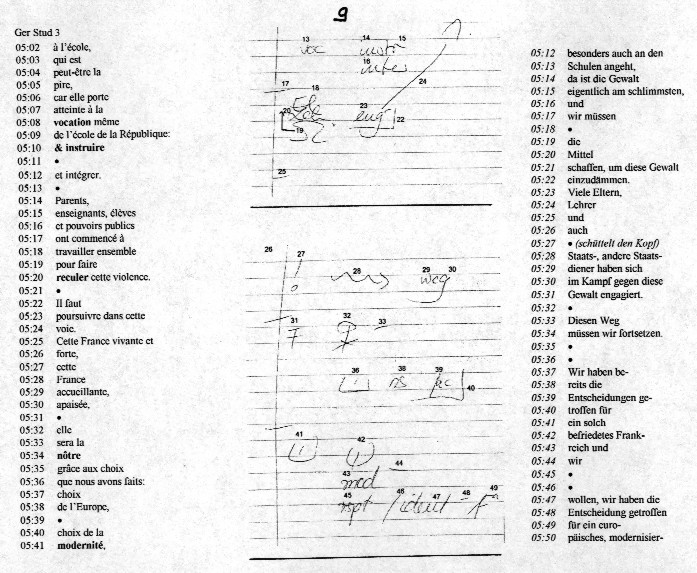 9
Ger Stud 3
05:02 à l'école,
05:03 qui est
05:04 peut-être la
05:05 pire,
05:06 car elle porte
05:07 atteinte à la
05:08 vocation même
05:09 de l'école de la République:
05:10 & instruire
05:11 •
05:12 et intégrer.
05:13 •
05:14 Parents,
05:15 enseignants, élèves
05:16 et pouvoirs publics
05:17 ont commencé à
05:18 travailler ensemble
05:19 pour faire
05:20 reculer cette violence.
05:21 •
05:22 Il faut
05:23 poursuivre dans cette
05:24 voie.
05:25 Cette France vivante et
05:26 forte,
05:27 cette
05:28 France
05:29 accueillante,
05:30 apaisée,
05:31 •
05:32 elle
05:33 sera la
05:34 nôtre
05:35 grâce aux choix
05:36 que nous avons faits:
05:37 choix
05:38 de l'Europe,
05:39 •
05:40 choix de la
05:41 modernité,
13 14 15
voc instr
16
17 18
24
20 23
eng 22
19
25
26 27
! 28 29 30
weg
31 32 33
F
36 38 39
ns 40
41 42
43 44
mod
45 46 47 48 49
rspt / ident = F
05:12 besonders auch an den
05:13 Schulen angeht,
05:14 da ist die Gewalt
05:15 eigentlich am schlimmsten,
05:16 und
05:17 wir müssen
05:18 •
05:19 die
05:20 Mittel
05:21 schaffen, um diese Gewalt
05:22 einzudämmen.
05:23 Viele Eltern,
05:24 Lehrer
05:25 und
05:26 auch
05:27 • (schüttelt den Kopf)
05:28 Staats-, andere Staats-
05:29 diener haben sich
05:30 im Kampf gegen diese
05:31 Gewalt engagiert.
05:32 •
05:33 Diesen Weg
05:34 müssen wir fortsetzen.
05:35 •
05:36 •
05:37 Wir haben be-
05:38 reits die
05:39 Entscheidungen ge-
05:40 troffen für
05:41 ein solch
05:42 befriedetes Frank-
05:43 reich und
05:44 wir
05:45 •
05:46 •
05:47 wollen, wir haben die
05:48 Entscheidung getroffen
05:49 für ein euro-
05:50 päisches, modernisier-